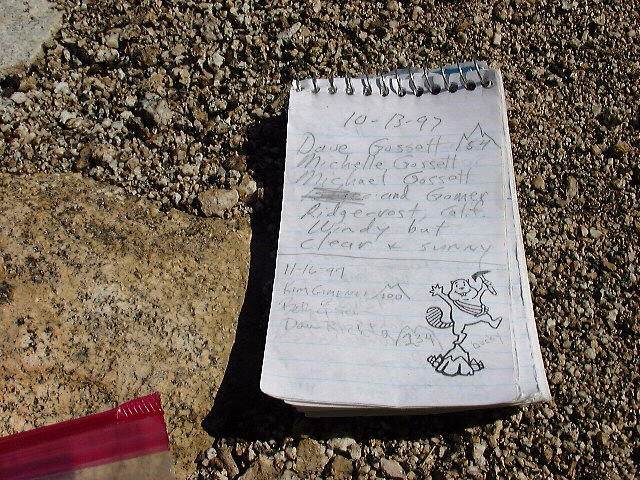 10-13-97
Dave Gossett 154
Michelle Gossett
Michael Gossett
and Gomer
Ridgecrest, Calif.
Windy but
clear & sunny
11-16-97
Kim Gimenez 100
Dave